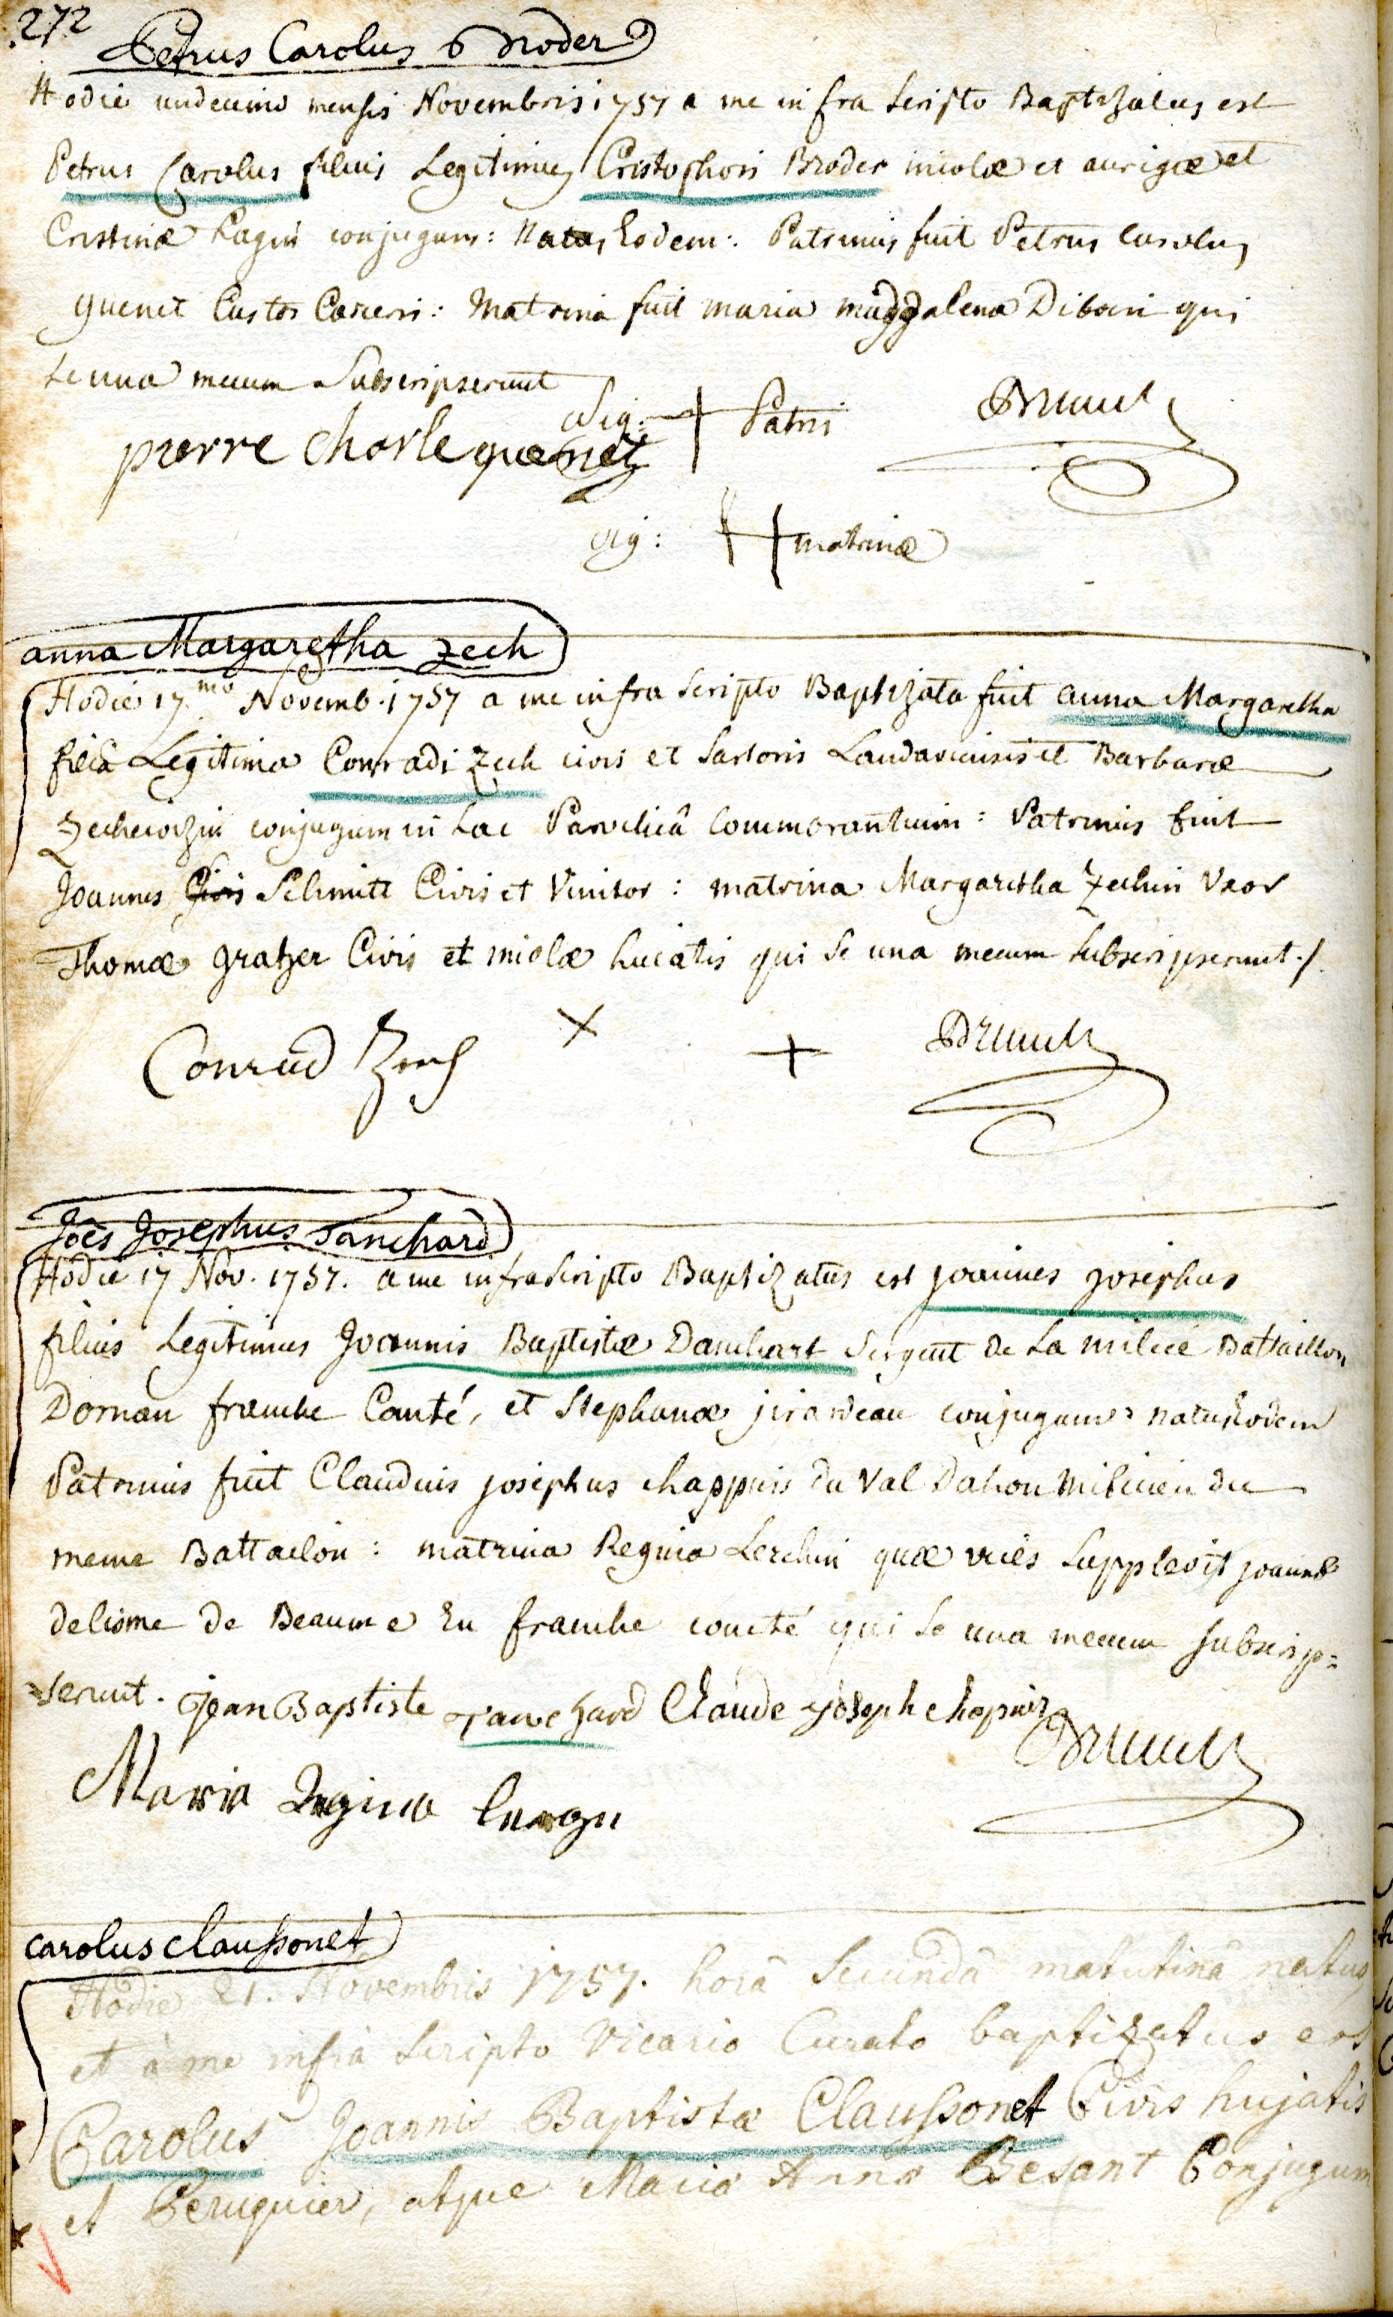 272
Petrus Carolus Broder
Hodie undecimo mensis Novembris 1757 a me infra scripto Baptizatus est
Petrus Carolus filius Legitimus Cristophori Broder incolæ et aurigæ et
Cristinæ Pagin conjugum: Natus Eodem: Patrinus fuit Petrus Carolus
quenet Custos Carceri: Matrina fuit maria magdalena Diboin qui
se una mecum subscripserunt
pierre charle quenet sig: Patris Brunck
sig: matrinæ
anna Margaretha Zech
Hodie 17mo Novemb. 1757 a me infra scripto Baptizata fuit anna Margaretha
filia Legitima Conradi Zech civis et sartoris Landaviensis et Barbaræ
conjugum in hac Parochiâ commorantium: Patrinus fuit
Joannes Civis Schmitt Civis et Vinitor: matrina Margaretha Zechin Uxor
Thomæ gratzer Civis et incolæ huiatis qui se una mecum subscripserunt ./.
Conrad Zech Brunck
Joës Josephus Tanchard
Hodie 17 Nov. 1757. a me infrascripto Baptizatus est joannes josephus
filius Legitimus Joannis Baptistæ Danchart sergent de La milice Battaillon
Dornan franche Conté, et Stephanæ jirardeau conjugum: natus Eodem
Patrinus fuit Claudius josephus chappuis du Val Dahon milicien du
meme Battaelon: matrina Regina Lerchin quæ vices supplevit joannæ
delisme de Beaume En franche comté qui se una mecum subscrip=
serunt. jean Baptiste Tanchard Claude joseph chapuiz Brunck
Maria Regina
carolus claussonet
Hodie 21. Novembris 1757. horâ secundâ matutinâ natus
et à me infrà scripto Vicario Curato baptizatus est
Carolus Joannis Baptistæ Claussonet Civis hujatis
et Peruquier, atque Maria Anna Besant Conjugum